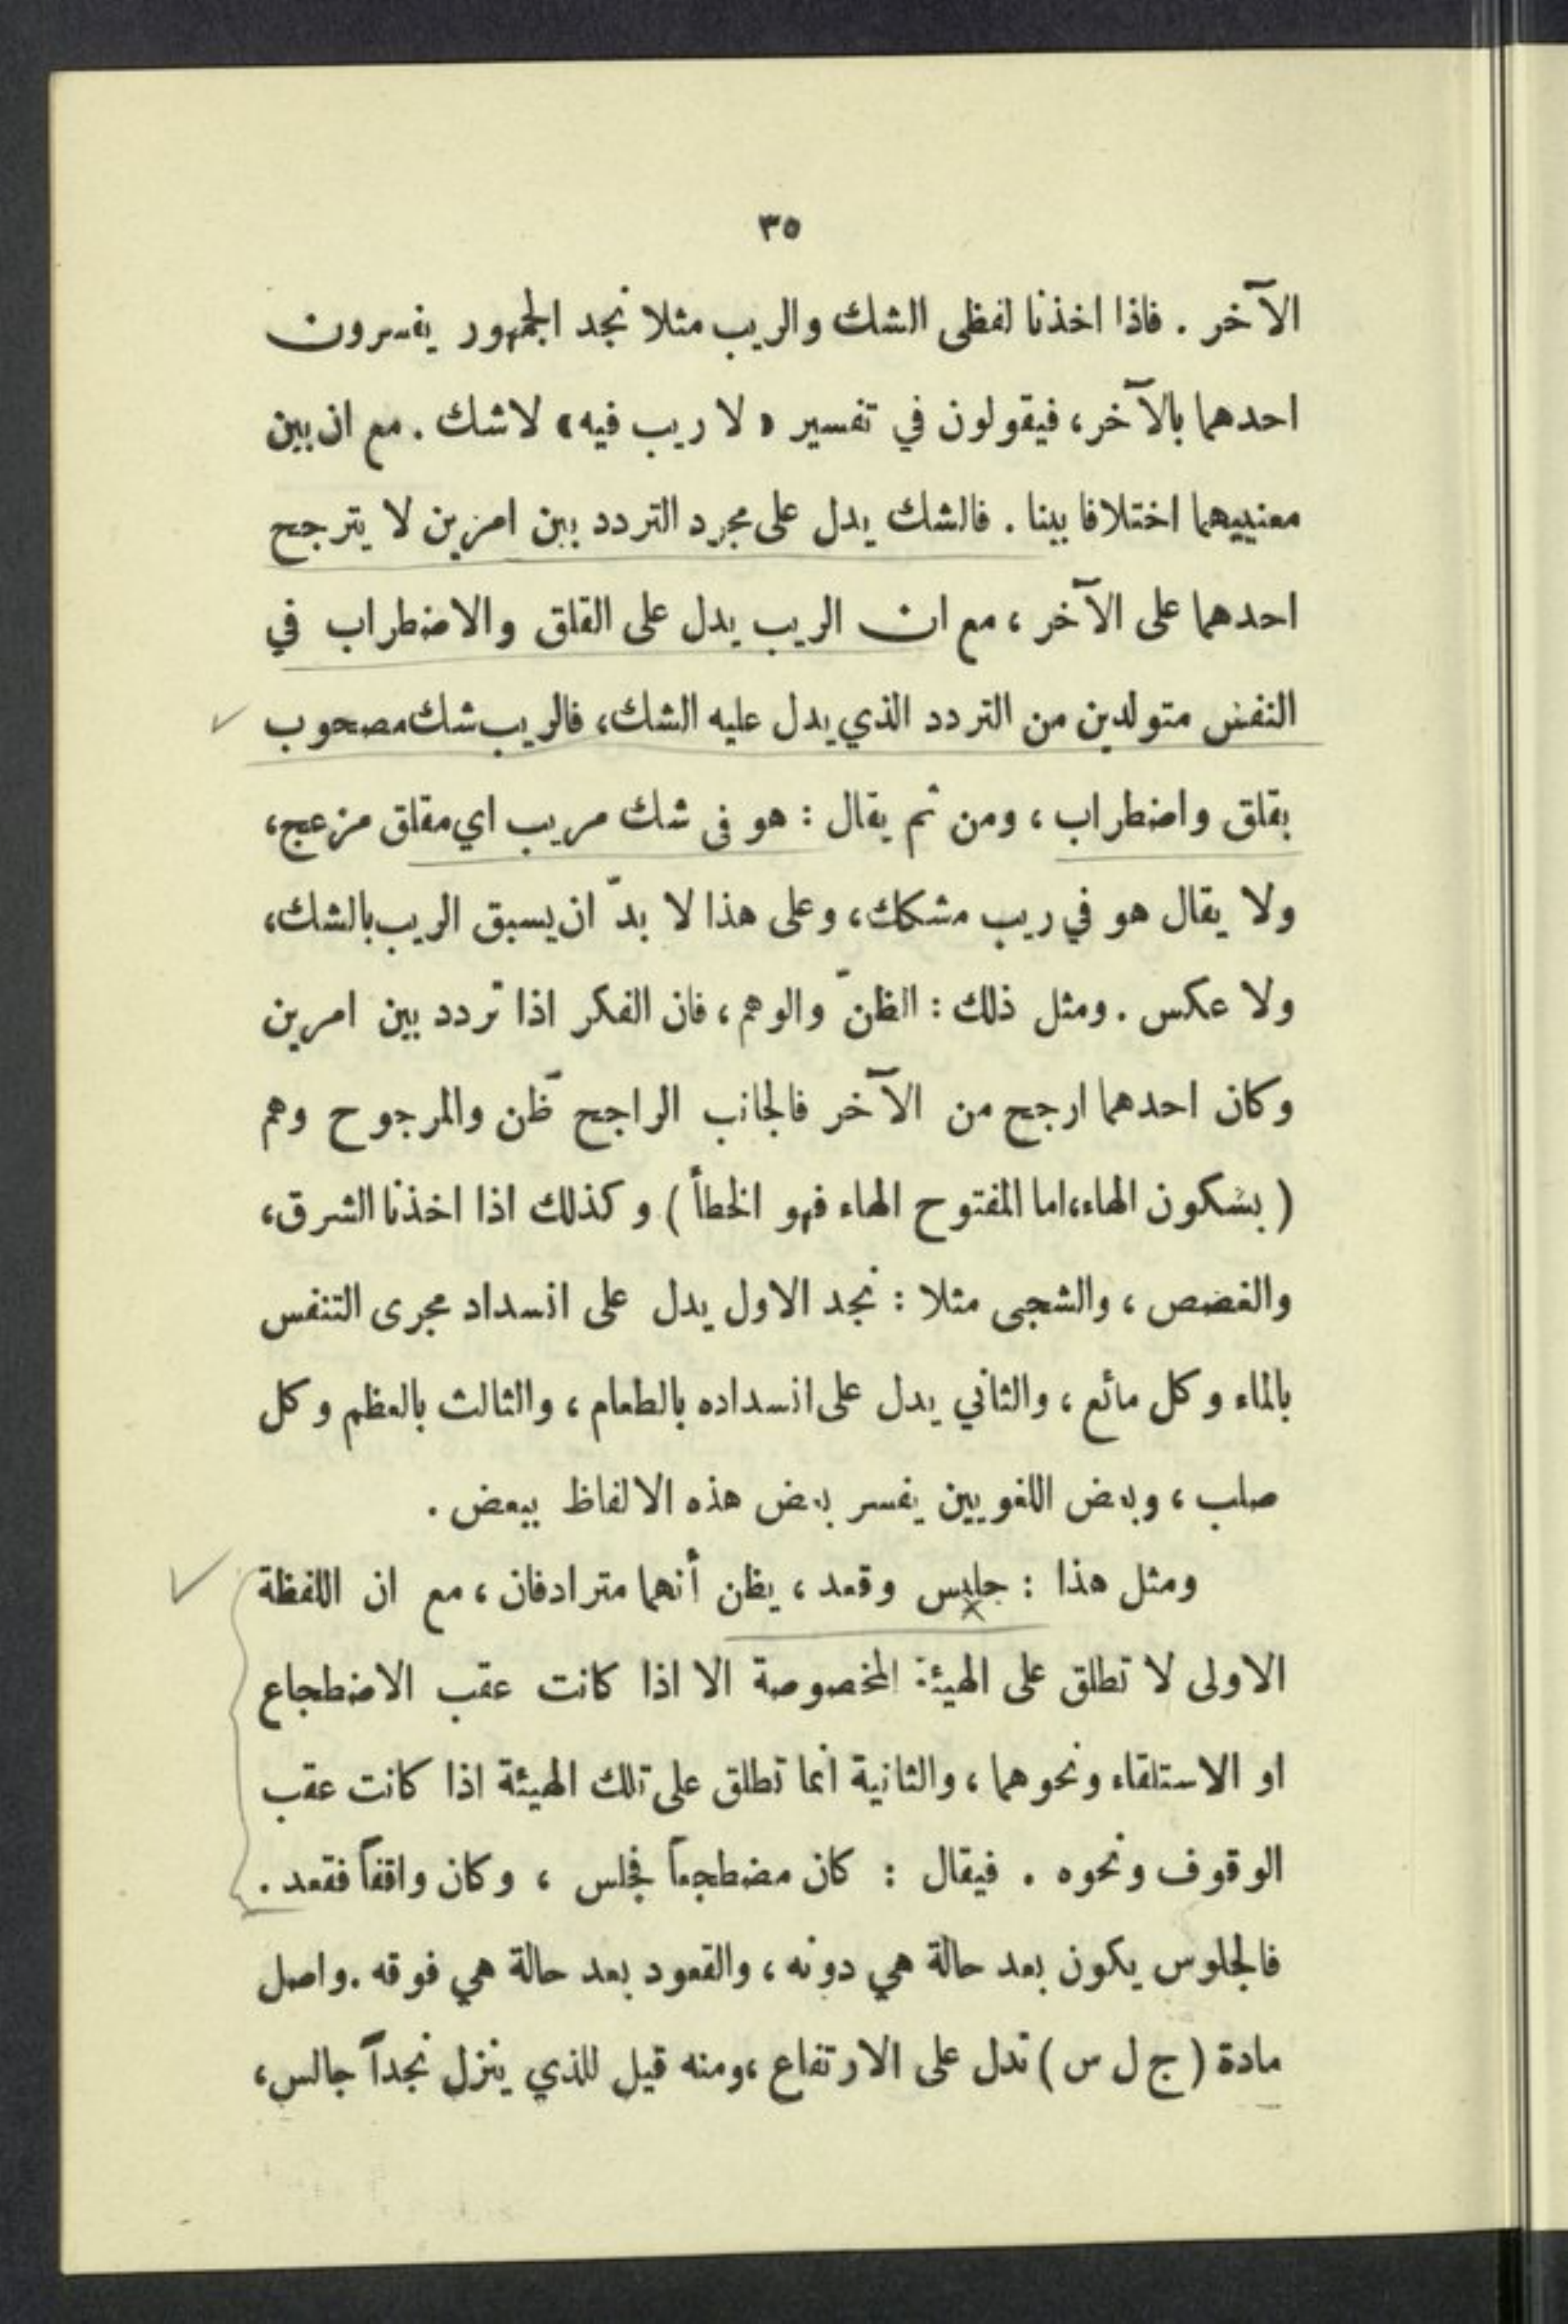 ٣٥
الآخر . فاذا اخذنا لفظى الشك والريب مثلا نجد الجمهور يفسرون
احدهما بالآخر، فيقولون في تفسير « لا ريب فيه » لاشك . مع ان بين
معنييهما اختلافا بينا . فالشك يدل على مجرد التردد بين امرين لا يترجح
احدهما على الآخر ، مع ان الريب يدل على القلق والاضطراب في
النفس متولدين من التردد الذي يدل عليه الشك، فالريب شك مصحوب
بقلق واضطراب ، ومن ثم يقال : هو فى شك مريب اي مقلق مزعج،
ولا يقال هو في ريب مشكك، وعلى هذا لا بدّ ان يسبق الريب بالشك،
ولا عكس . ومثل ذلك : الظنّ والوهم ، فان الفكر اذا تردد بين امرين
وكان احدهما ارجح من الآخر فالجانب الراجح ظّن والمرجوح وهم
( بسكون الهاء،اما المفتوح الهاء فهو الخطأ ) وكذلك اذا اخذنا الشرق،
والغصص ، والشجى مثلا : نجد الاول يدل على انسداد مجرى التنفس
بالماء وكل مائع ، والثاني يدل على انسداده بالطعام ، والثالث بالعظم وكل
صلب ، وبعض اللغويين يفسر بعض هذه الالفاظ ببعض .
ومثل هذا : جلس وقعد ، يظن أنهما مترادفان ، مع ان اللفظة
الاولى لا تطلق على الهيئة المخصوصة الا اذا كانت عقب الاضطجاع
او الاستلقاء ونحوهما ، والثانية انما تطلق على تلك الهيئة اذا كانت عقب
الوقوف ونحوه . فيقال : كان مضطجعاً فجلس ، وكان واقفاً فقعد .
فالجلوس يكون بعد حالة هي دونه ، والقعود بعد حالة هي فوقه .واصل
مادة ( ج ل س ) تدل على الارتفاع ،ومنه قيل للذي ينزل نجداً جالس،